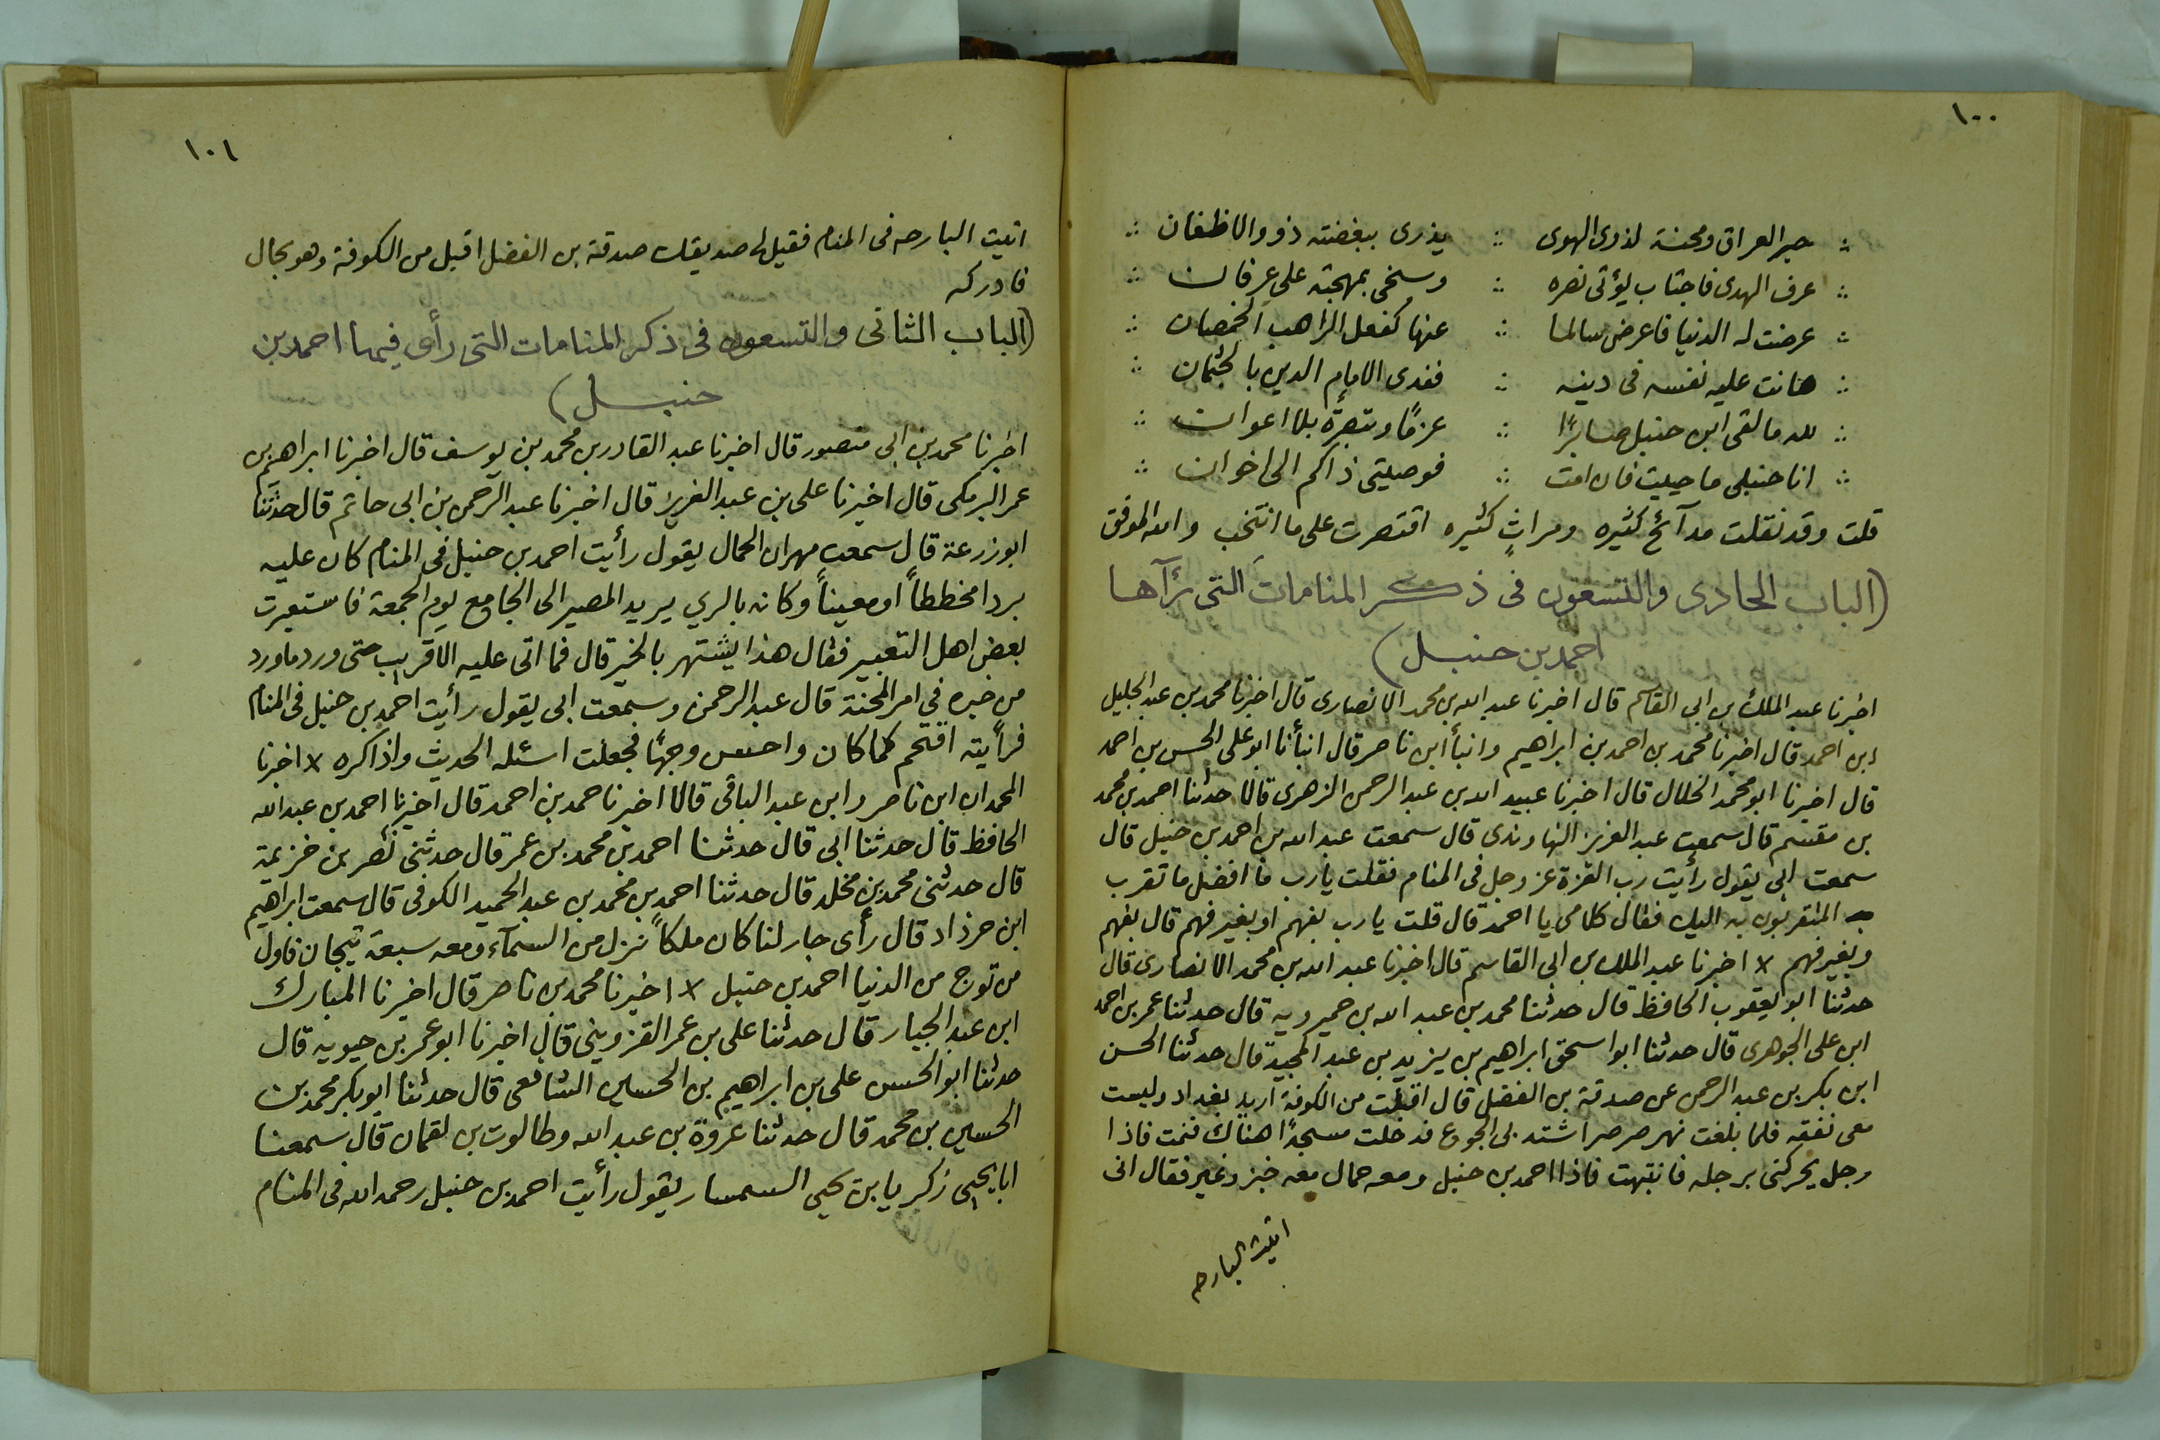 ١٠٠
حبر العراق ومحنة لذوى الهوى ؞ يذرى ببغضته ذوو الاظغان
عرف الهدى فاجتاب يؤتى نصره ؞ وسخى بمهجته على عرفان
عرضت له الدنيا فاعرض سالما ؞ عنها كفعل الراهب الخمصان
هانت عليه نفسه فى دينه ؞ ففدى الامام الدين بالجثمان
لله مالقى ابن حنبل صابرًا ؞ عزمًا وتبصرة بلا اعوان
انا حنبلى ما حييت فان امت ؞ فوصيتى ذاكم الى اخوان
قلت وقد نقلت مدآئح كثيره ومراثٍ كثيره اقتصرت على ما انتخب والله الموفق
(الباب الحادى والتسعون فى ذكر المنامات التى رَآها
احمد بن حنبل)
اخبرنا عبد الملك بن ابى القاسم قال اخبرنا عبد الله بن محمد الانصارى قال اخبرنا محمد بن عبد الجليل
ابن احمد قال اخبرنا محمد بن احمد بن ابراهيم وانبأ ابن ناصر قال انبأنا ابو على الحسن بن احمد
قال اخبرنا ابو محمد الخلال قال اخبرنا عبيد الله بن عبد الرحمن الزهرى قالا حدثنا احمد بن محمد
بن مقسم قال سمعت عبد العزيز النهاوندى قال سمعت عبد الله بن احمد بن حنبل قال
سمعت ابى يقول رأيت رب العزة عز وجل فى المنام فقلت يارب ما افضل ما تقرب
به المتقربون به اليك فقال كلامى يا احمد قال قلت يا رب بفهم او بغير فهم قال بفهم
وبغير فهم × اخبرنا عبد الملك بن ابى القاسم قال اخبرنا عبد الله بن محمد الانصارى قال
حدثنا ابو يعقوب الحافظ قال حدثنا محمد بن عبد الله بن حميرويه قال حدثنا عمر بن احمد
ابن على الجوهرى قال حدثنا ابو اسحق ابراهيم بن يزيد بن عبد المجيد قال حدثنا الحسن
ابن بكر بن عبد الرحمن عن صدقة بن الفضل قال اقبلت من الكوفة اريد بغداد وليست
معى نفقه فلما بلغت نهر صرصر اشتد بى الجوع فدخلت مسجدًا هناك فنمت فاذا
رجل يحركنى برجله فانتبهت فاذا احمد بن حنبل ومعه حمال معه خبز وغير فقال انى
اتيت البارحه
١٠١
اتيت البارحه فى المنام فقيل لى صديقك صدقة بن الفضل اقبل من الكوفة وهو بحال
فادركه
(الباب الثانى والتسعون فى ذكر المنامات التى رأى فيها احمد بن
حنبل)
اخبرنا محمد بن ابى منصور قال اخبرنا عبد القادر بن محمد بن يوسف قال اخبرنا ابراهيم بن
عمر البرمكى قال اخبرنا على بن عبد العزيز قال اخبرنا عبد الرحمن بن ابى حاتم قال حدثنا
ابو زرعة قال سمعت مهران الجمال يقول رأيت احمد بن حنبل فى المنام كان عليه
بردا مخططاً او معيناً وكانه بالري يريد المصير الى الجامع يوم الجمعة فاستعبرت
بعض اهل التعبير فقال هذا يشتهر بالخير قال فما اتى عليه الا قريب حتى ورد ما ورد
من خبره في امر المحنة قال عبد الرحمن وسمعت ابى يقول رأيت احمد بن حنبل فى المنام
فرأيته افخم كما كان واحسن وجهًا فجعلت اسئله الحديث واذاكره × اخبرنا
المحمدان ابن ناصر وابن عبد الباقى قالا اخبرنا حمد بن احمد قال اخبرنا احمد بن عبد الله
الحافظ قال حدثنا ابى قال حدثنا احمد بن محمد بن عمر قال حدثنى نصر بن خزيمة
قال حدثنى محمد بن مخلد قال حدثنا احمد بن محمد بن عبد الحميد الكوفى قال سمعت ابراهيم
ابن خرذاد قال رأى جار لنا كان ملكاً نزل من السمآء ومعه سبعة تيجان فاول
من توج من الدنيا احمد بن حنبل × اخبرنا محمد بن ناصر قال اخبرنا المبارك
ابن عبد الجبار قال حدثنا على بن عمر القزوينى قال اخبرنا ابو عمر بن حيويه قال
حدثنا ابو الحسن على بن ابراهيم بن الحسين الشافعى قال حدثنا ابو بكر محمد بن
الحسين بن محمد قال حدثنا عروة بن عبد الله وطالوت بن لقمان قال سمعنا
ابا يحيى زكريا بن يحيى السمسار يقول رأيت احمد بن حنبل رحمه الله فى المنام